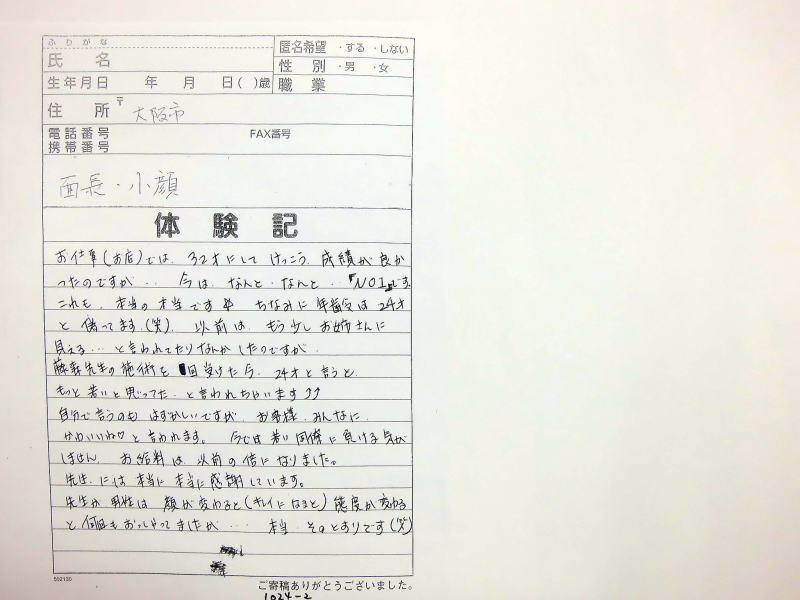 ふりがな
氏 名
匿名希望 ・する ・しない
性 別 ・男 ・女
生年月日 年 月 日( )歳
職 業
住 所 〒 大阪市
電話番号 FAX番号
携帯番号
面長・小顔
体 験 記
お仕事(お店)では、32才にして けっこう 成績が良か
ったのですが… 今は、なんと・なんと…「NO1」です
これも、本当の本当です ちなみに 年齢は24才
と 偽ってます(笑) 以前は、もう少しお姉さんに
見える…と言われてたりなんかしたのですが、
藤森先生の施術を 回受けた今、24才と言うと
もっと若いと思ってた と言われちゃいます⤴⤴
自分で言うのも はずかしいですが、お客様、みんなに
かわいいね♡と言われます。 今では若い同僚に負ける気が
しません、お給料は以前の倍になりました。
先生には本当に本当に感謝しています。
先生が 男性は 顔が変わると(キレイになると)態度が変わる
と何回もおっしゃってましたが… 本当 そのとおりです(笑)
502130
ご寄稿ありがとうございました。
1024-2